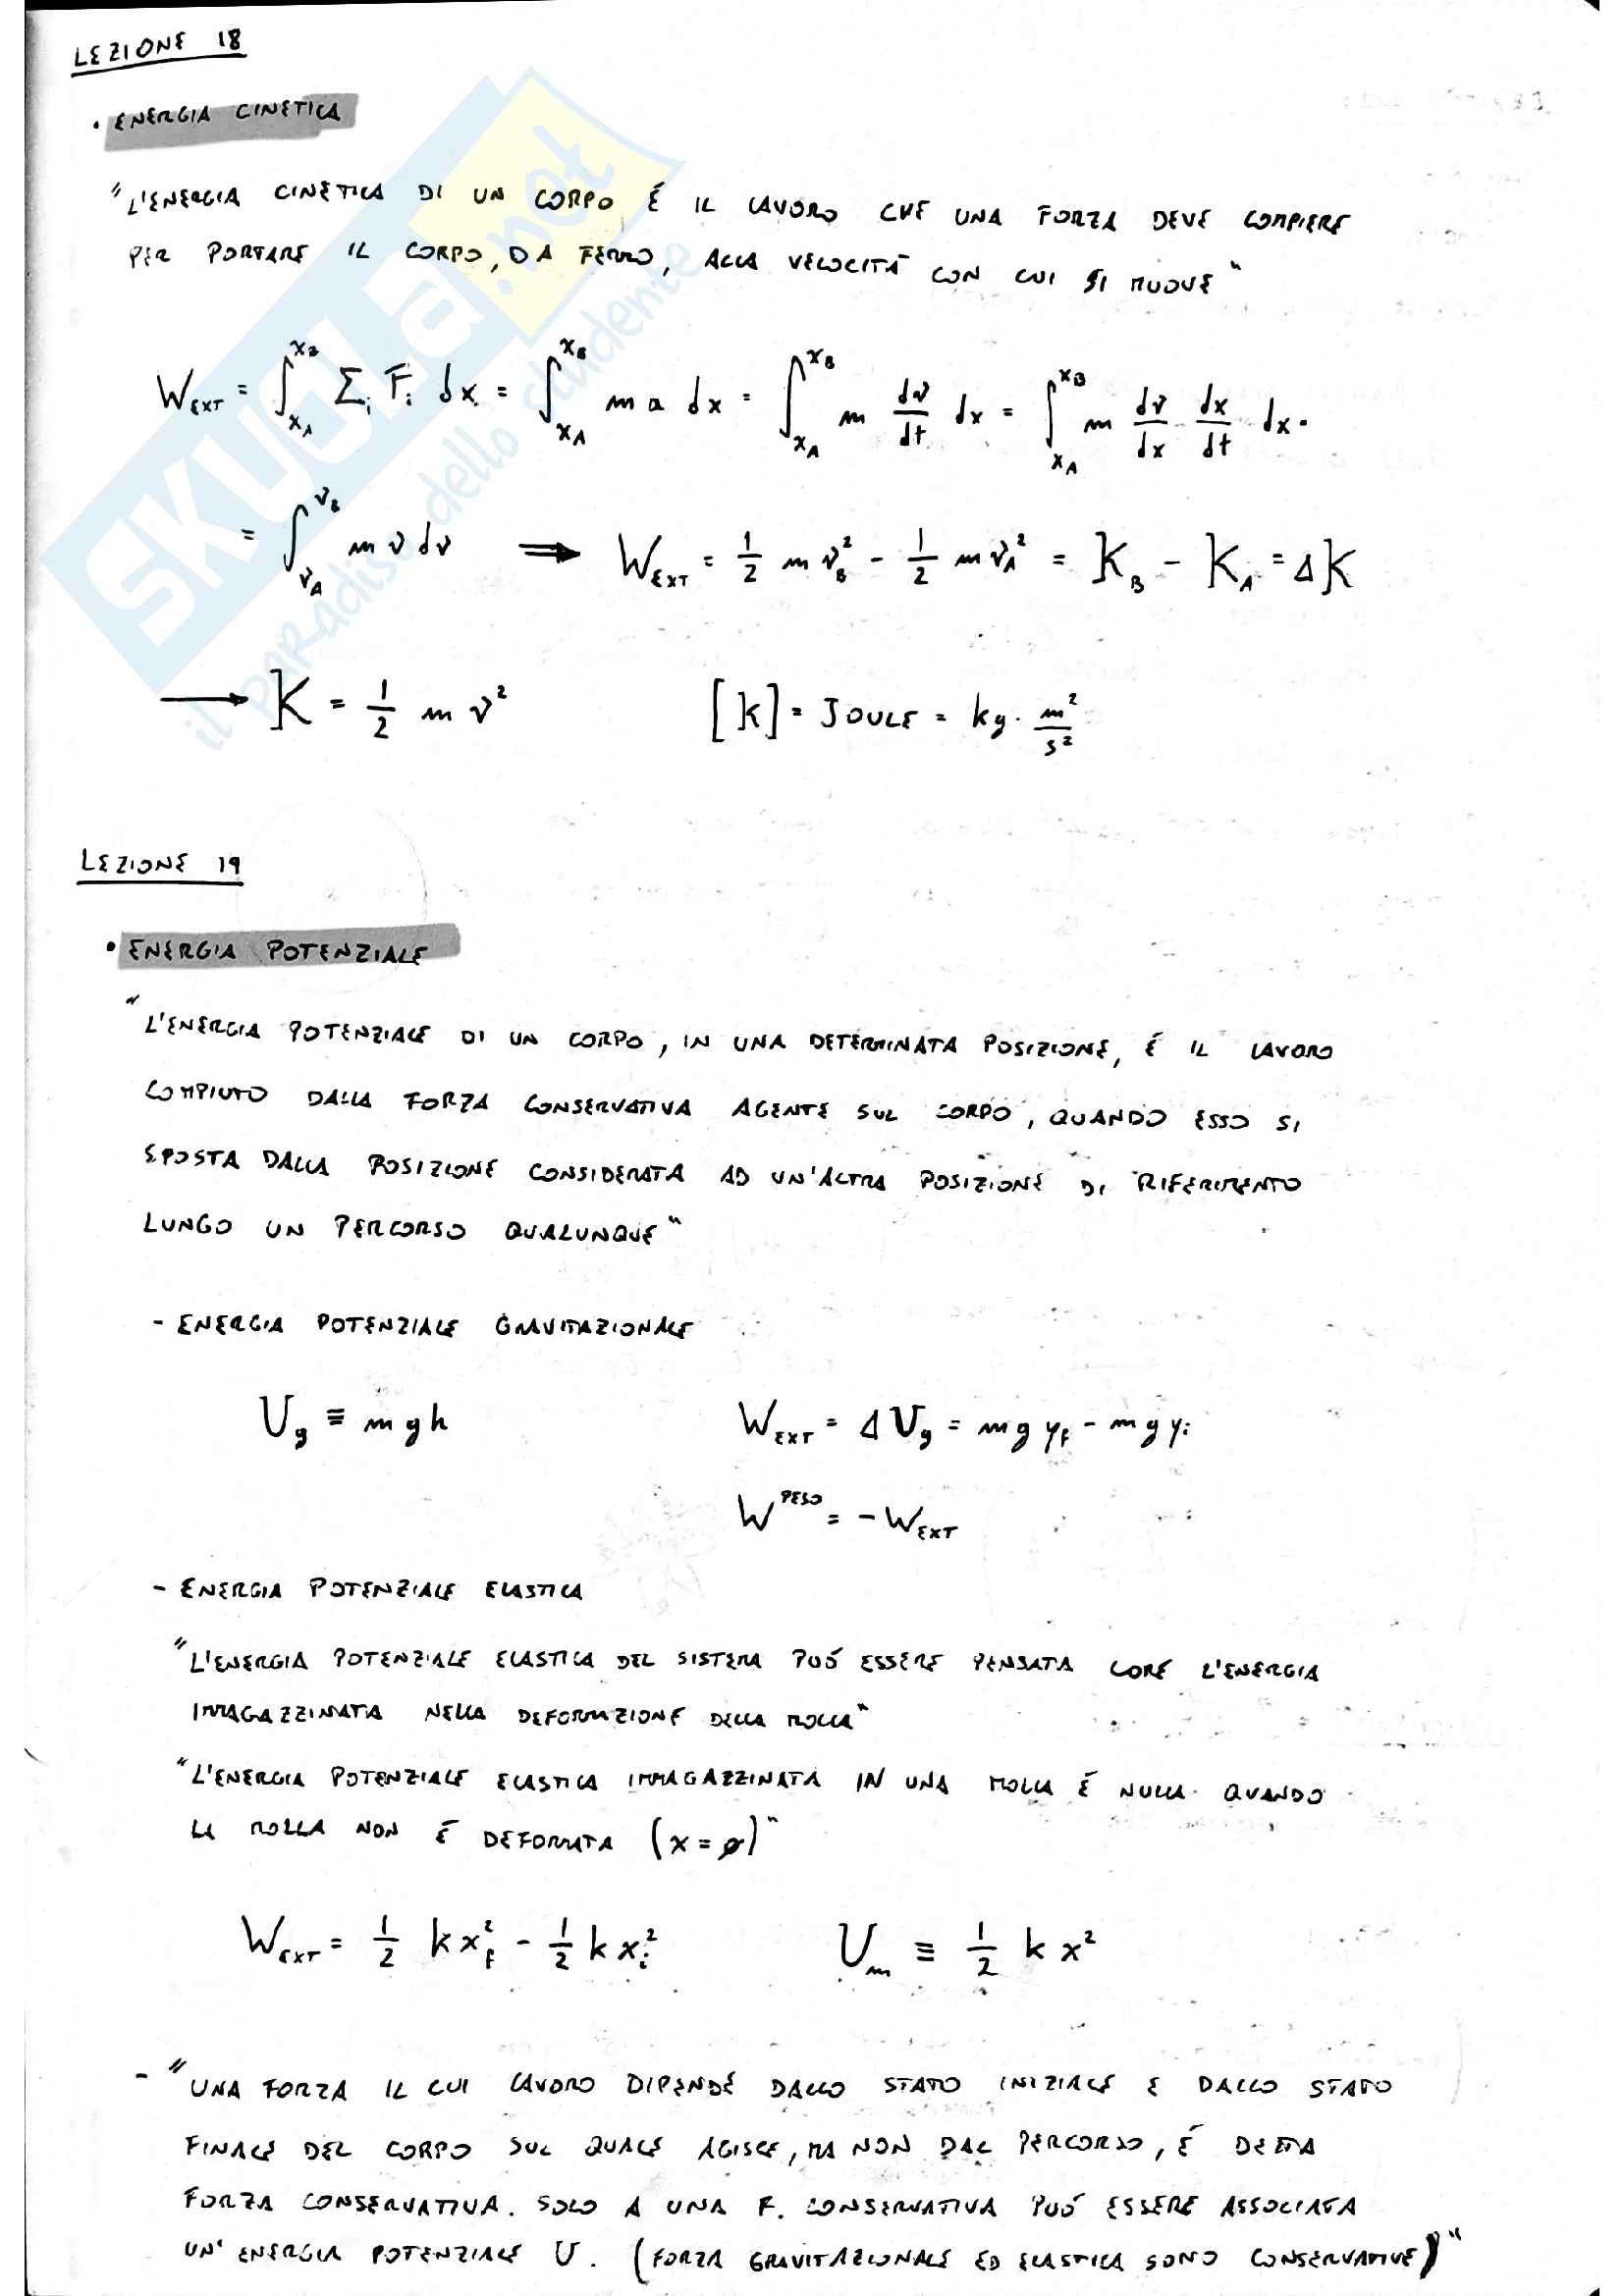 LEZIONE 18
• ENERGIA CINETICA
"L'ENERGIA CINETICA DI UN CORPO É IL LAVORO CHE UNA FORZA DEVE COMPIERE
PER PORTARE IL CORPO, DA FERMO, ALLA VELOCITÁ CON CUI SI MUOVE"
W_EXT = ∫_{x_A}^{x_B} Σ_i F_i dx = ∫_{x_A}^{x_B} m a dx = ∫_{x_A}^{x_B} m dv/dt dx = ∫_{x_A}^{x_B} m dv/dx dx/dt dx =
= ∫_{v_A}^{v_B} m v dv ⟹ W_EXT = 1/2 m v_B² - 1/2 m v_A² = K_B - K_A = ΔK
⟶ K = 1/2 m v² [K] = JOULE = kg · m²/s²
LEZIONE 19
• ENERGIA POTENZIALE
"L'ENERGIA POTENZIALE DI UN CORPO, IN UNA DETERMINATA POSIZIONE, É IL LAVORO
COMPIUTO DALLA FORZA CONSERVATIVA AGENTE SUL CORPO, QUANDO ESSO SI
SPOSTA DALLA POSIZIONE CONSIDERATA AD UN'ALTRA POSIZIONE DI RIFERIMENTO
LUNGO UN PERCORSO QUALUNQUE"
- ENERGIA POTENZIALE GRAVITAZIONALE
U_g ≡ m g h W_EXT = ΔU_g = m g y_f - m g y_i
W^PESO = - W_EXT
- ENERGIA POTENZIALE ELASTICA
"L'ENERGIA POTENZIALE ELASTICA DEL SISTEMA PUÓ ESSERE PENSATA COME L'ENERGIA
IMMAGAZZINATA NELLA DEFORMAZIONE DELLA MOLLA"
"L'ENERGIA POTENZIALE ELASTICA IMMAGAZZINATA IN UNA MOLLA É NULLA QUANDO
LA MOLLA NON É DEFORMATA (x = ø)"
W_EXT = 1/2 k x_f² - 1/2 k x_i² U_m ≡ 1/2 k x²
- "UNA FORZA IL CUI LAVORO DIPENDE DALLO STATO INIZIALE E DALLO STATO
FINALE DEL CORPO SUL QUALE AGISCE, MA NON DAL PERCORSO, É DETTA
FORZA CONSERVATIVA. SOLO A UNA F. CONSERVATIVA PUÓ ESSERE ASSOCIATA
UN' ENERGIA POTENZIALE U. (FORZA GRAVITAZIONALE ED ELASTICA SONO CONSERVATIVE)"
SKUOLA.net
il paradiso dello studente